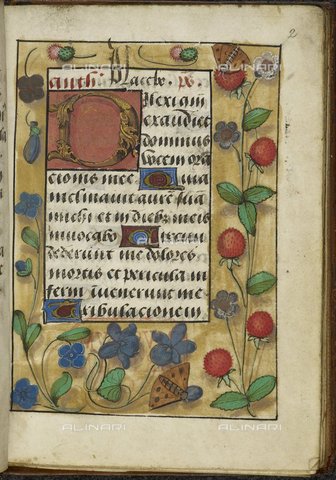 2
anth. Placebo. ps.
Dilexi qm̄
exaudiet
dominus
vocem ora
cionis mee. Quia
inclinauit aurē suā
michi et in diebꝫ meis
inuocabo Circum
dederunt me dolores
mortis et pericula in
ferni inuenerunt me
Tribulacionem
ALINARI
ALINARI
ALINARI
ALINARI